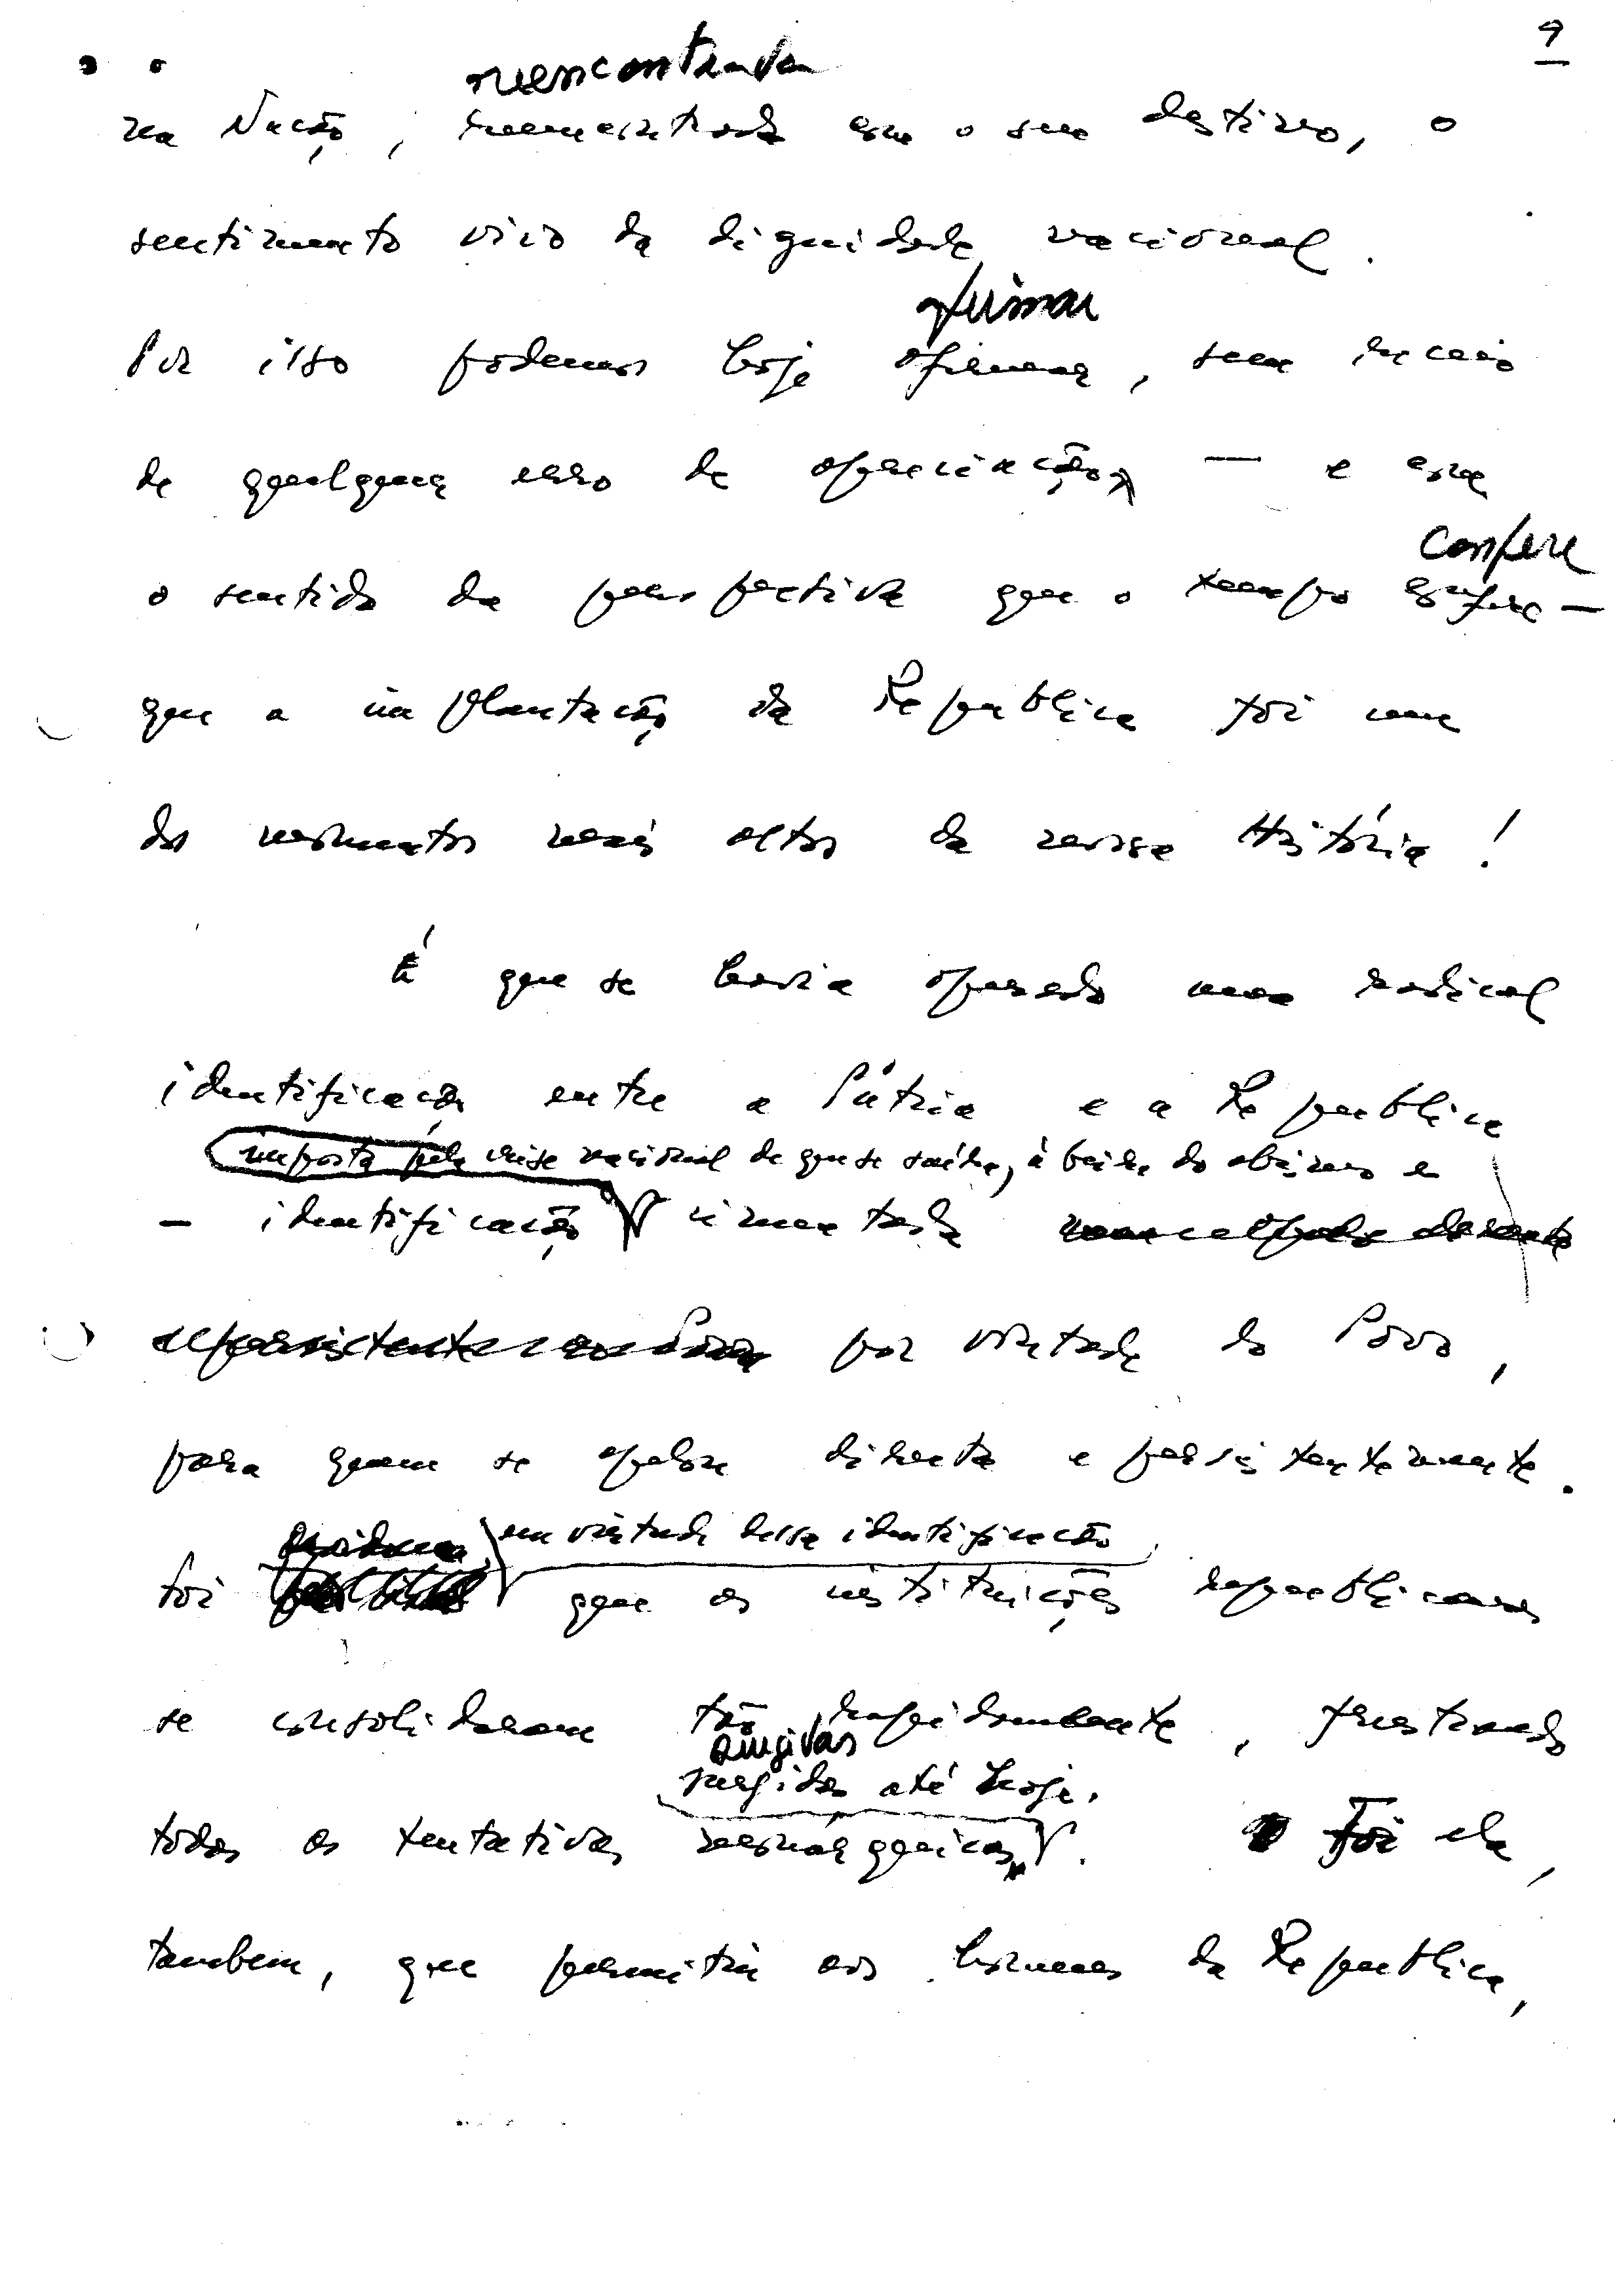 9
reencontrada
na Nação, reencontrada em o seu destino, o
sentimento vivo da dignidade nacional.
afirmar
Por isso podemos hoje afirmar, sem receio
de qualquer erro de apreciação, — e em
confere
o sentido da perspectiva que o tempo confere —
que a implantação da Republica foi um
dos momentos mais altos da nossa História!
É que se havia operado uma radical
identificação entre a Pátria e a Republica
imposta pela crise nacional de que se saíra, à beira do abismo e
— identificação cimentada
por vontade do Povo,
para quem se apelou directa e persistentemente.
em virtude dessa identificação
Foi que as instituições republicanas
se consolidaram tão rapidamente, frustrando
surgidas
surgidas até hoje.
todas as tentativas monárquicas. Foi ela,
tambem, que permitiu aos homens da Republica,